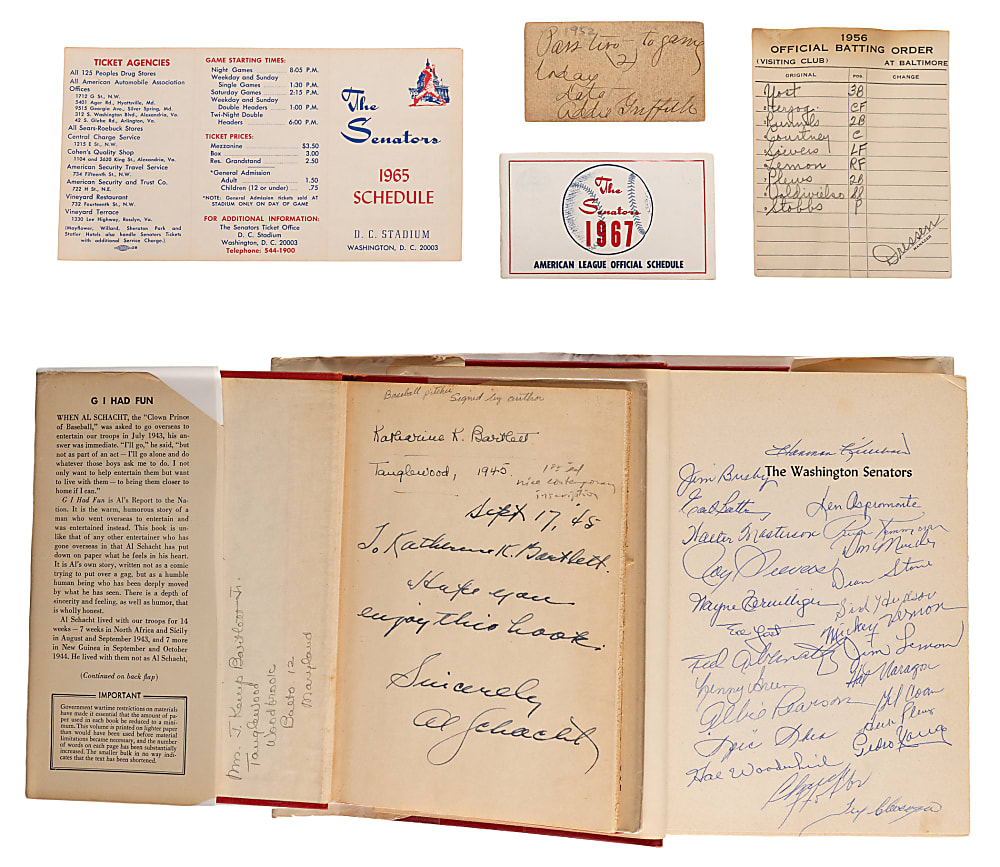 TICKET AGENCIES
All 125 Peoples Drug Stores
All American Automobile Association
Offices
1712 G St., N.W.
5401 Ager Rd., Hyattsville, Md.
9515 Georgia Ave., Silver Spring, Md.
312 S. Washington Blvd., Alexandria, Va.
42 S. Glebe Rd., Arlington, Va.
All Sears-Roebuck Stores
Central Charge Service
1215 E St., N.W.
Cohen's Quality Shop
1104 and 3620 King St., Alexandria, Va.
American Security Travel Service
734 Fifteenth St., N.W.
American Security and Trust Co.
722 H St., N.E.
Vineyard Restaurant
732 Fourteenth St., N.W.
Vineyard Terrace
1330 Lee Highway, Rosslyn, Va.
(Mayflower, Willard, Sheraton Park and
Statler Hotels also handle Senators Tickets
with additional Service Charge.)
GAME STARTING TIMES:
Night Games 8:05 P.M.
Weekday and Sunday
Single Games 1:30 P.M.
Saturday Games 2:15 P.M.
Weekday and Sunday
Double Headers 1:00 P.M.
Twi-Night Double
Headers 6:00 P.M.
TICKET PRICES:
Mezzanine $3.50
Box 3.00
Res. Grandstand 2.50
*General Admission
Adult 1.50
Children (12 or under) .75
*NOTE: General Admission tickets sold AT
STADIUM ONLY ON DAY OF GAME
FOR ADDITIONAL INFORMATION:
The Senators Ticket Office
D. C. Stadium
Washington, D. C. 20003
Telephone: 544-1900
The
Senators
1965
SCHEDULE
D. C. STADIUM
WASHINGTON, D. C. 20003
1952
Pass two to game
(2)
today
Griffith
The
Senators
1967
AMERICAN LEAGUE OFFICIAL SCHEDULE
1956
OFFICIAL BATTING ORDER
(VISITING CLUB) AT BALTIMORE
ORIGINAL POS. CHANGE
Yost 3B
Herzog CF
Runnels 2B
Courtney C
Sievers LF
Lemon RF
Plews 2B
Valdivielso SS
Stobbs P
Dressen
MANAGER
G I HAD FUN
WHEN AL SCHACHT, the "Clown Prince
of Baseball," was asked to go overseas to
entertain our troops in July 1943, his an-
swer was immediate. "I'll go," he said, "but
not as part of an act — I'll go alone and do
whatever those boys ask me to do. I not
only want to help entertain them but want
to live with them — to bring them closer to
home if I can."
G I Had Fun is Al's Report to the Na-
tion. It is the warm, humorous story of a
man who went overseas to entertain and
was entertained instead. This book is un-
like that of any other entertainer who has
gone overseas in that Al Schacht has put
down on paper what he feels in his heart.
It is Al's own story, written not as a comic
trying to put over a gag, but as a humble
human being who has been deeply moved
by what he has seen. There is a depth of
sincerity and feeling, as well as humor, that
is wholly honest.
Al Schacht lived with our troops for 14
weeks — 7 weeks in North Africa and Sicily
in August and September 1943, and 7 more
in New Guinea in September and October
1944. He lived with them not as Al Schacht,
(Continued on back flap)
IMPORTANT
Government wartime restrictions on materials
have made it essential that the amount of pa-
per used in each book be reduced to a mini-
mum. This volume is printed on lighter paper
than would have been used before material
limitations became necessary, and the number
of words on each page has been substantially
increased. The smaller bulk in no way indi-
cates that the text has been shortened.
Mrs. J. Kemp Bartlett Jr.
Tanglewood
Woodbrook
Balto 12
Maryland
Baseball pitcher Signed by author
Katharine K. Bartlett
Tanglewood, 1945.
1st ed
nice contemporary
inscription
Sept 17, '45
To Katherine K. Bartlett.
Hope you
enjoy this book.
Sincerely
Al Schacht
Harmon Killebrew
The Washington Senators
Jim Busby
Ken Aspromonte
Walter Masterson
Don Mincher
Roy Sievers
Dean Stone
Wayne Terwilliger
Sid Hudson
Mickey Vernon
Eddie Yost
Jim Lemon
Ted Abernathy
Hal Naragon
Kenny Breen
Albie Pearson
Gil Coan
Herb Plews
Spec Shea
Pedro Ramos
Hal Woodeshick
Tex Clevenger